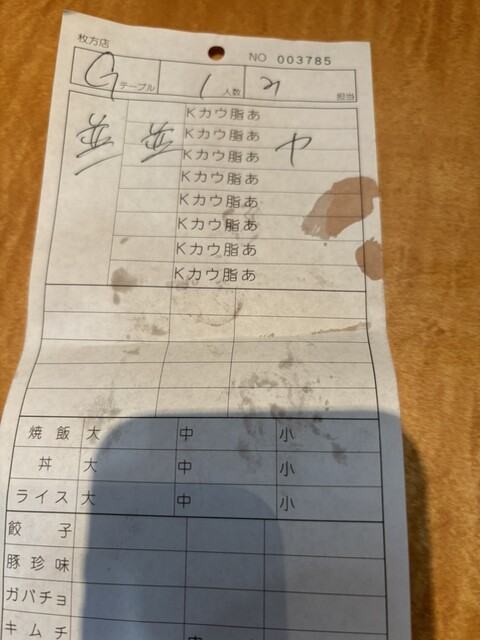 枚方店
NO 003785
G テーブル 1 人数 担当
Kカウ脂あ
並 並 Kカウ脂あ
Kカウ脂あ
Kカウ脂あ
Kカウ脂あ
Kカウ脂あ
Kカウ脂あ
Kカウ脂あ
焼飯 大 中 小
丼 大 中 小
ライス 大 中 小
餃子
豚珍味
ガバチョ
キムチ